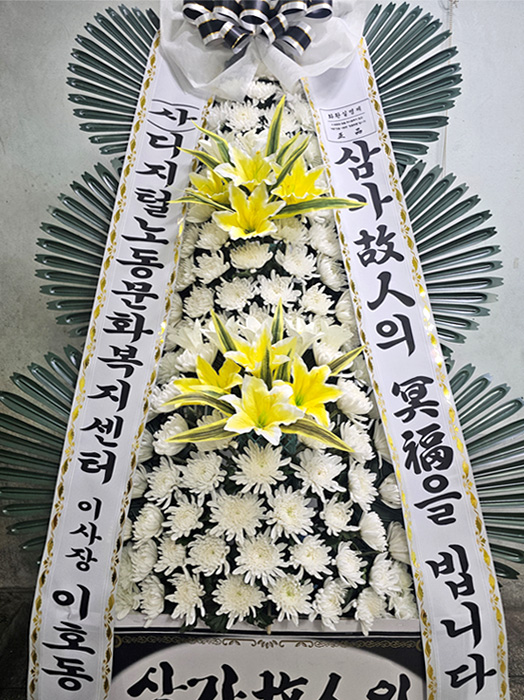 (사)디지털노동문화복지센터 이사장 이호동
화환실명제
正品
삼가 故人의 冥福을 빕니다
삼가 故人의